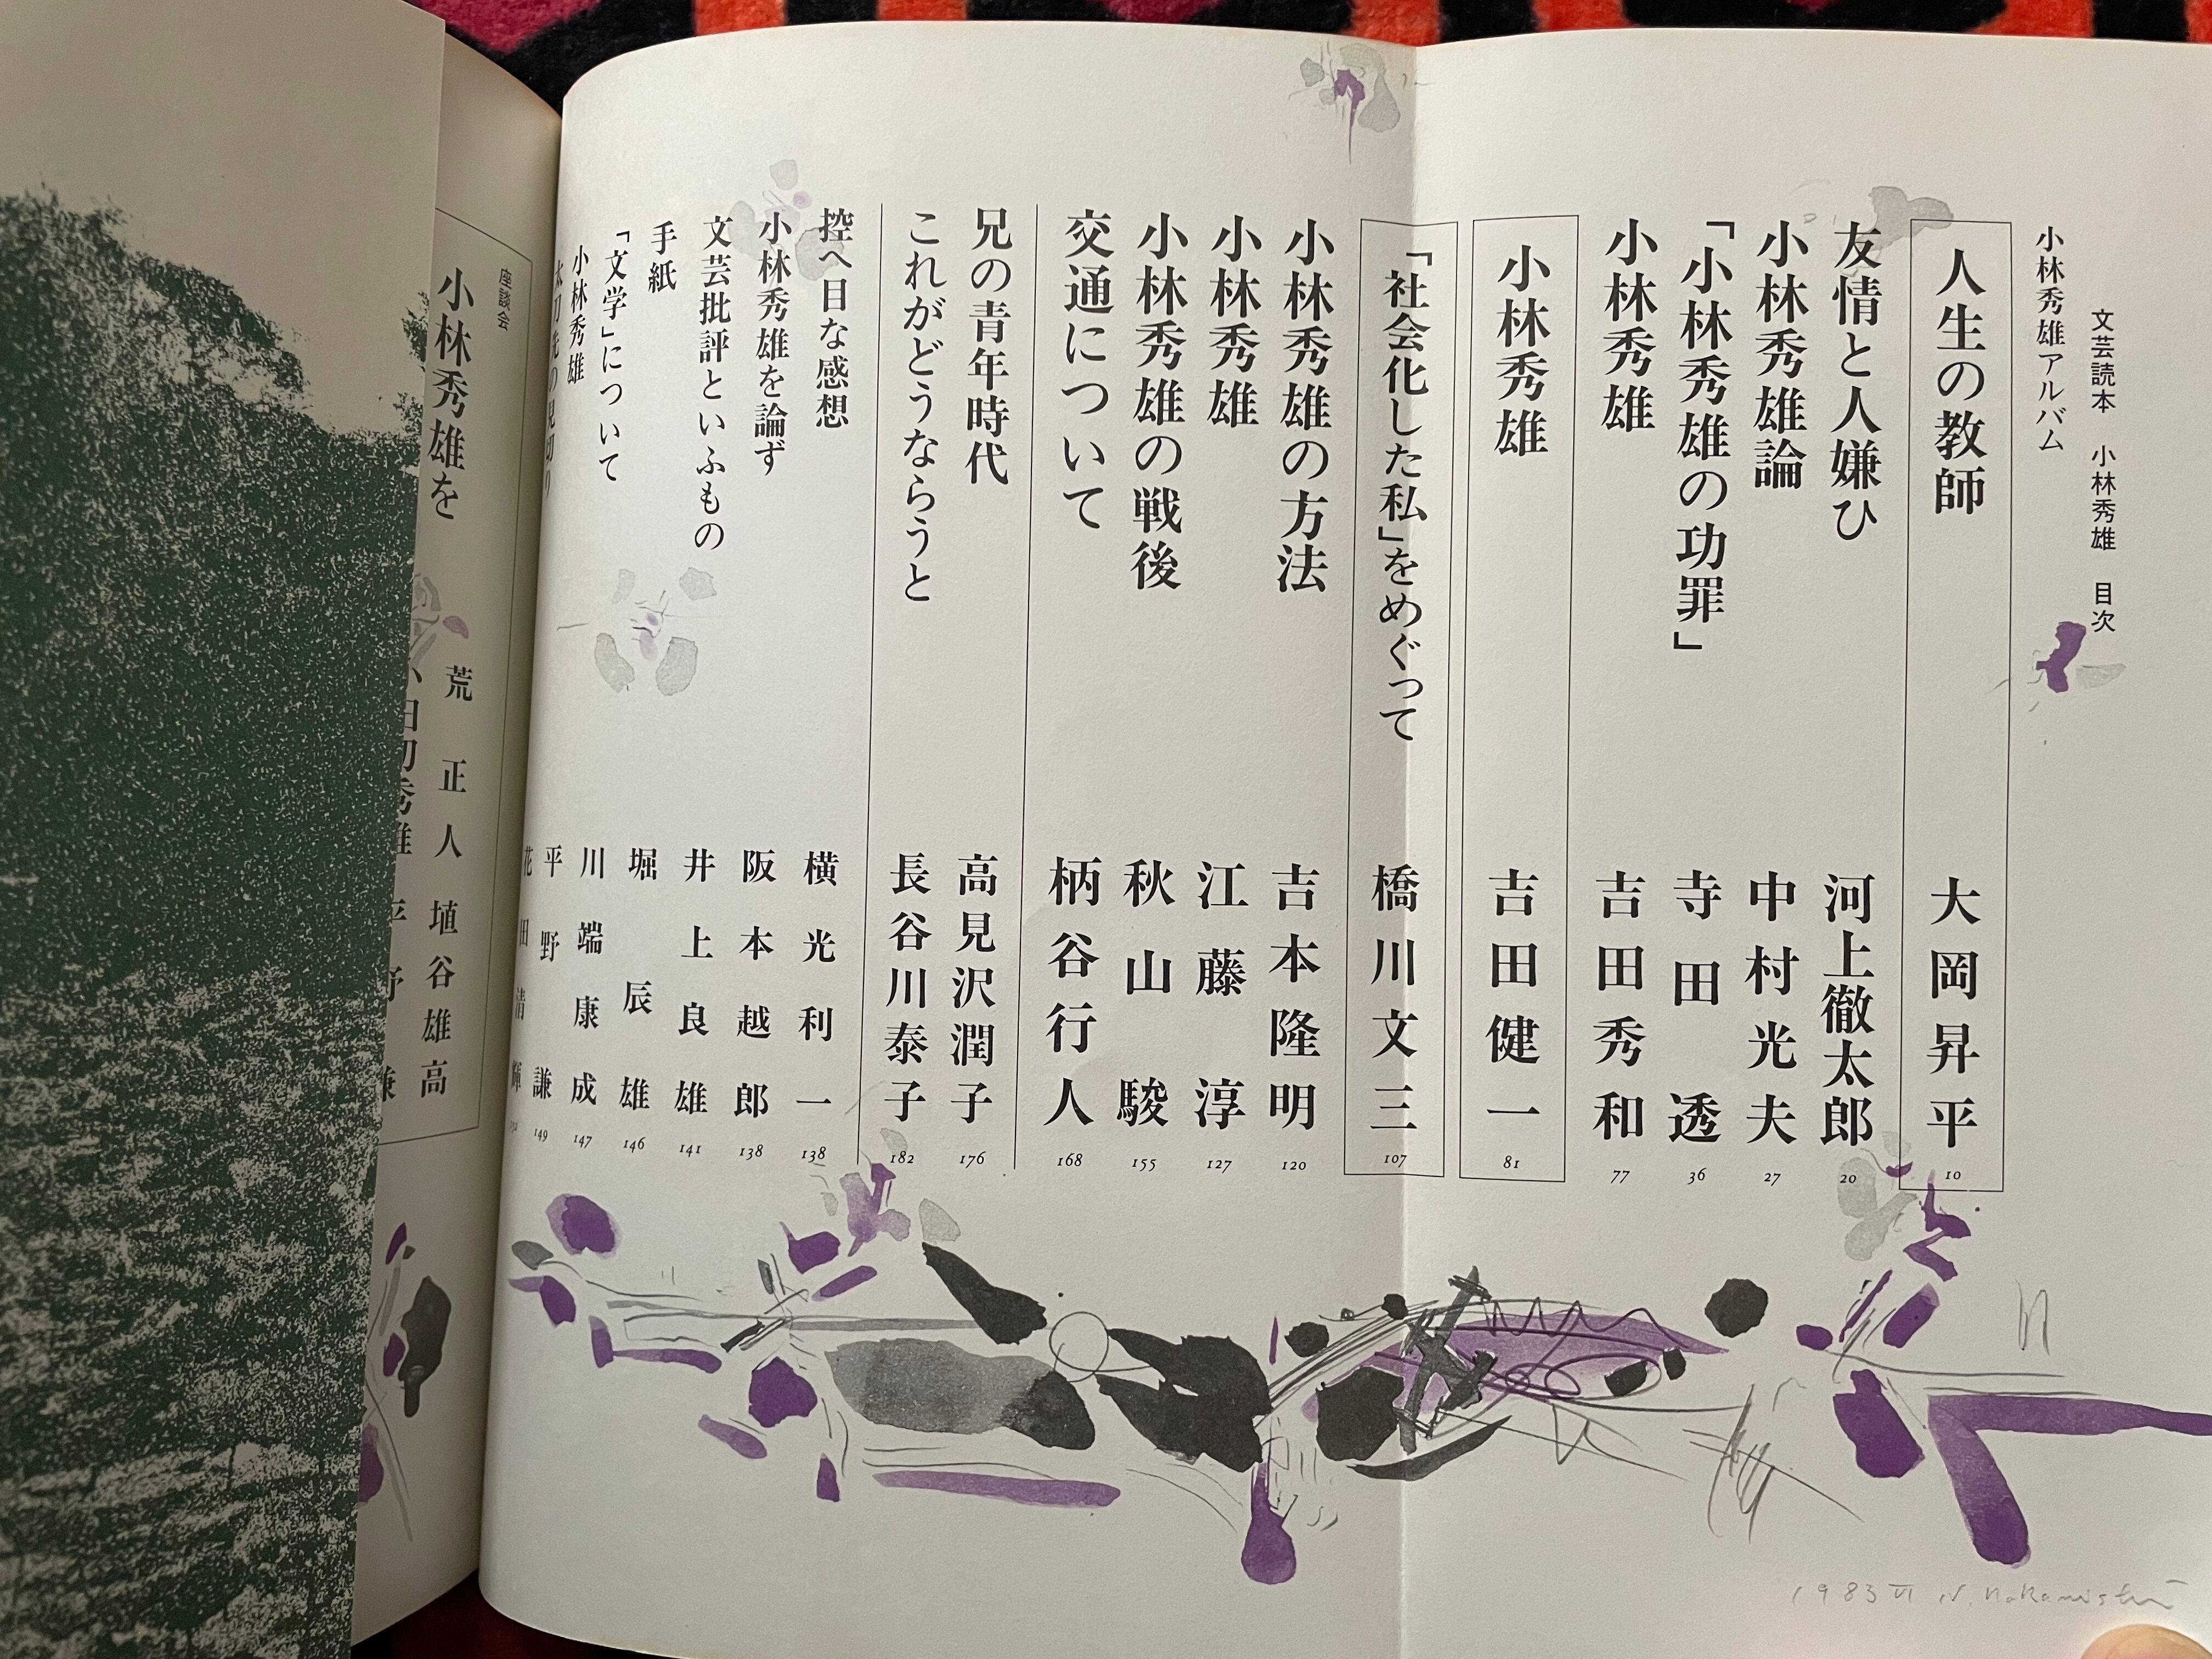 文芸読本 小林秀雄 目次
小林秀雄アルバム
人生の教師 大岡昇平 10
友情と人嫌ひ 河上徹太郎 20
小林秀雄論 中村光夫 27
「小林秀雄の功罪」 寺田透 36
小林秀雄 吉田秀和 77
小林秀雄 吉田健一 81
「社会化した私」をめぐって 橋川文三 107
小林秀雄の方法 吉本隆明 120
小林秀雄 江藤淳 127
小林秀雄の戦後 秋山駿 155
交通について 柄谷行人 168
兄の青年時代 高見沢潤子 176
これがどうならうと 長谷川泰子 182
控へ目な感想 横光利一 138
小林秀雄を論ず 阪本越郎 138
文芸批評といふもの 井上良雄 141
手紙 堀辰雄 146
「文学」について 川端康成 147
小林秀雄 平野謙 149
の見切り 花田清輝
座談会
小林秀雄を 荒正人 埴谷雄高
小田切秀雄 平野謙
1983 VI N. Nakanishi